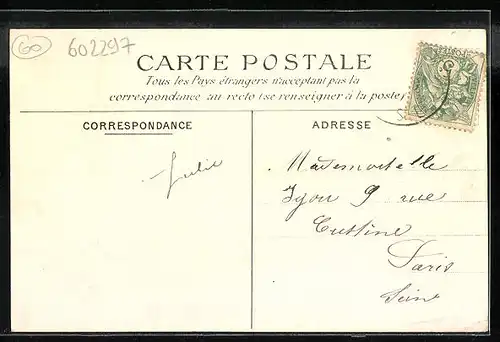 60
602297
CARTE POSTALE
Tous les Pays étrangers n'acceptant pas la
correspondance au recto (se renseigner à la poste)
CORRESPONDANCE
ADRESSE
Julie
Mademoiselle
9 rue
Custine
Paris
Seine